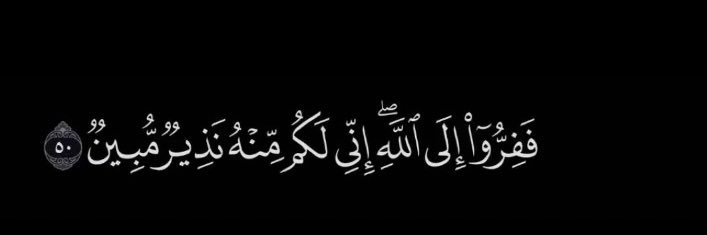 فَفِرُّوٓا۟ إِلَى ٱللَّهِ ۖ إِنِّى لَكُم مِّنْهُ نَذِيرٌ مُّبِينٌ ٥٠